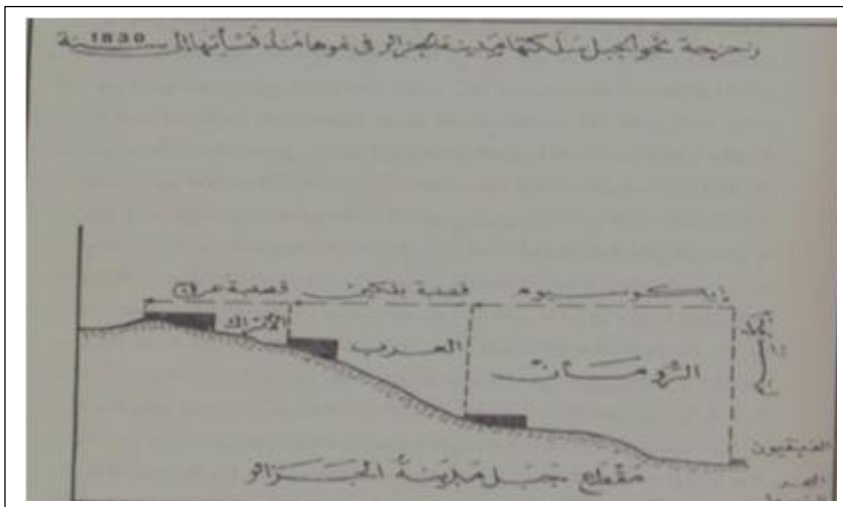 نحو الجبل سلكتها مدينة الجزائر في نموها منذ نشأتها إلى سنة 1830
إيكوسيوم قصبة بلكين قصبة
الأتراك
العرب
الرومان
الفينيقيون
مقطع جبل مدينة الجزائر